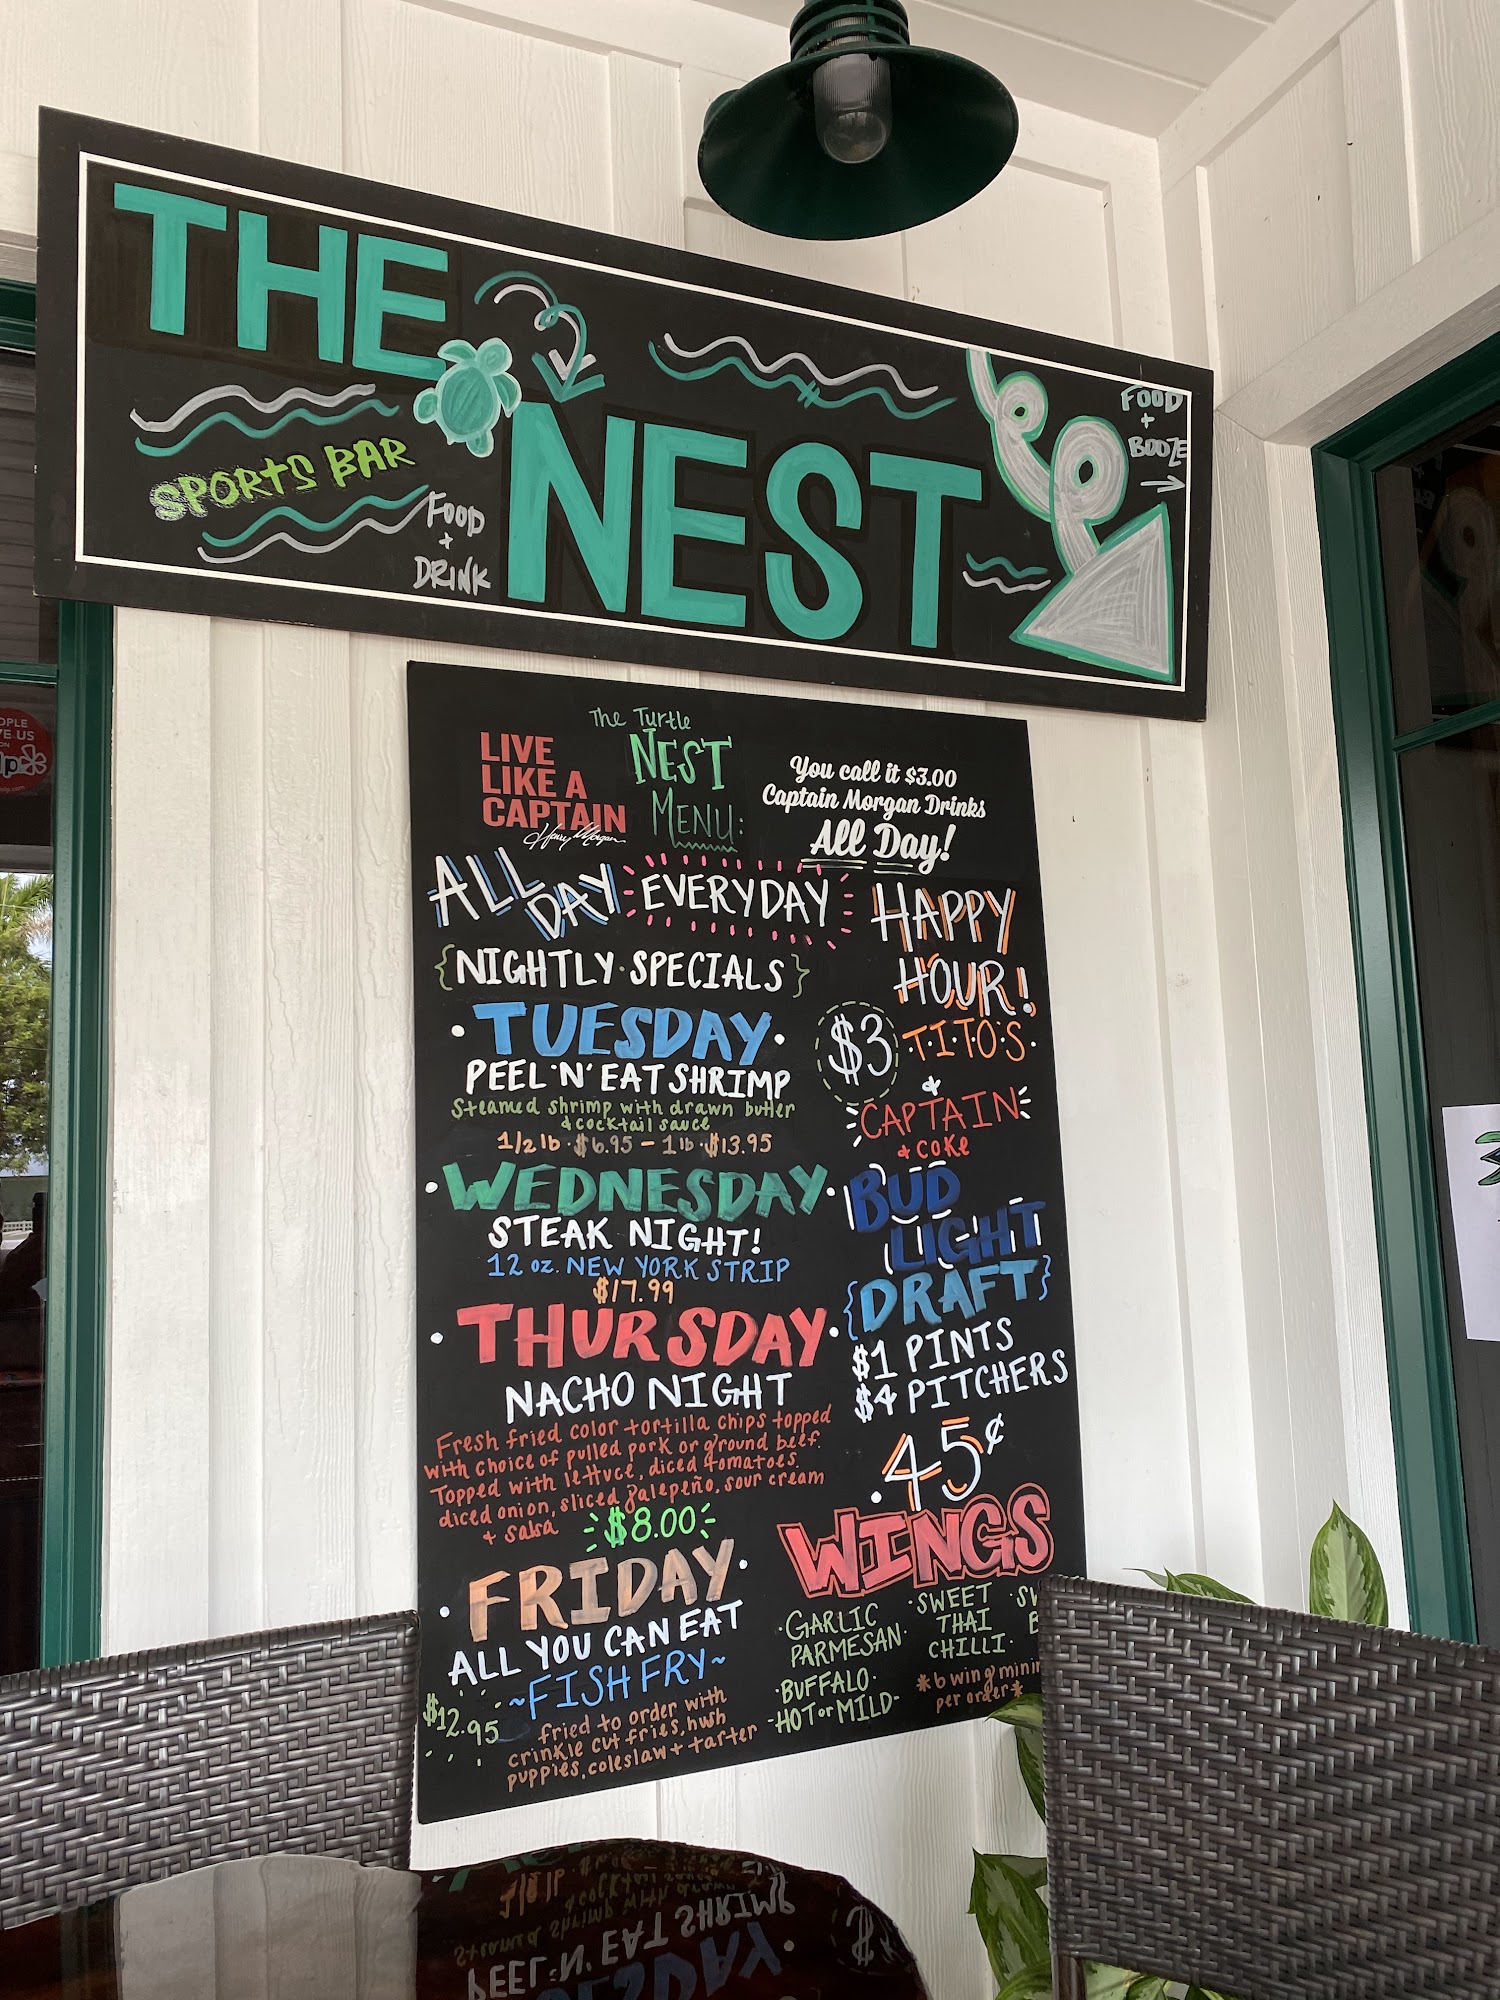 THE
NEST
SPORTS BAR
FOOD
+
DRINK
FOOD
+
BOOZE
LIVE
LIKE A
CAPTAIN
Henry Morgan
The Turtle
NEST
MENU:
You call it $3.00
Captain Morgan Drinks
All Day!
ALL
DAY
EVERYDAY
HAPPY
HOUR!
{NIGHTLY·SPECIALS}
·TUESDAY·
PEEL 'N' EAT SHRIMP
Steamed shrimp with drawn butter
& cocktail sauce
1/2 lb · $6.95 - 1 lb · $13.95
·WEDNESDAY·
STEAK NIGHT!
12 oz. NEW YORK STRIP
$17.99
·THURSDAY·
NACHO NIGHT
Fresh fried color tortilla chips topped
with choice of pulled pork or ground beef.
Topped with lettuce, diced tomatoes,
diced onion, sliced jalepeño, sour cream
+ salsa
$8.00
·FRIDAY·
ALL YOU CAN EAT
~FISH FRY~
$12.95
fried to order with
crinkle cut fries, hush
puppies, coleslaw + tarter
$3
T·I·T·O'·S·
&
CAPTAIN
& COKE
BUD
LIGHT
{DRAFT}
$1 PINTS
$4 PITCHERS
.45¢
WINGS
·GARLIC
PARMESAN·
·BUFFALO·
-HOT or MILD-
·SWEET
THAI
CHILLI·
*6 wing
per order*